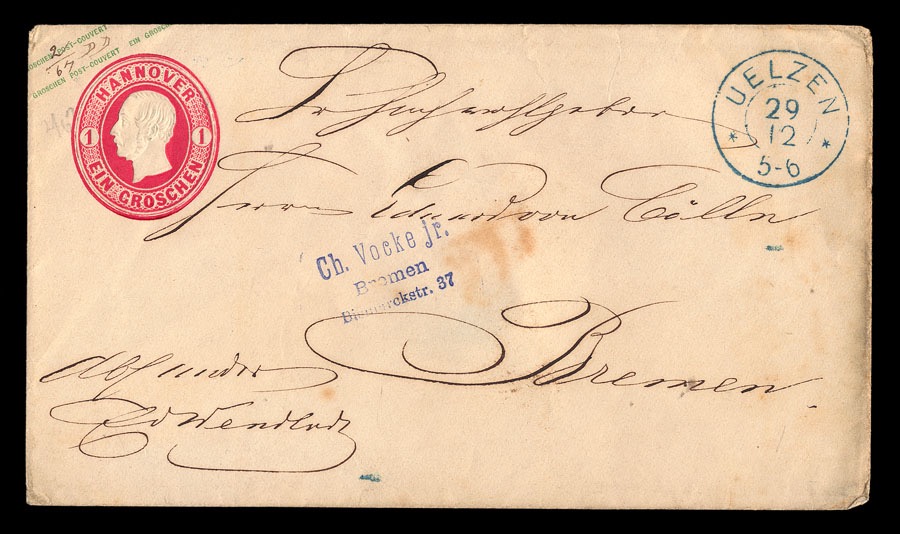 GROSCHEN POST-COUVERT EIN GROSCHEN
GROSCHEN POST-COUVERT
2/67
HANNOVER
1 1
EIN GROSCHEN
UELZEN
29
12
5-6
Sr Hochwohlgeboren
Herrn Eduard von Cölln
Ch. Vocke jr.
Bremen
Bismarckstr. 37
Bremen.
Absender